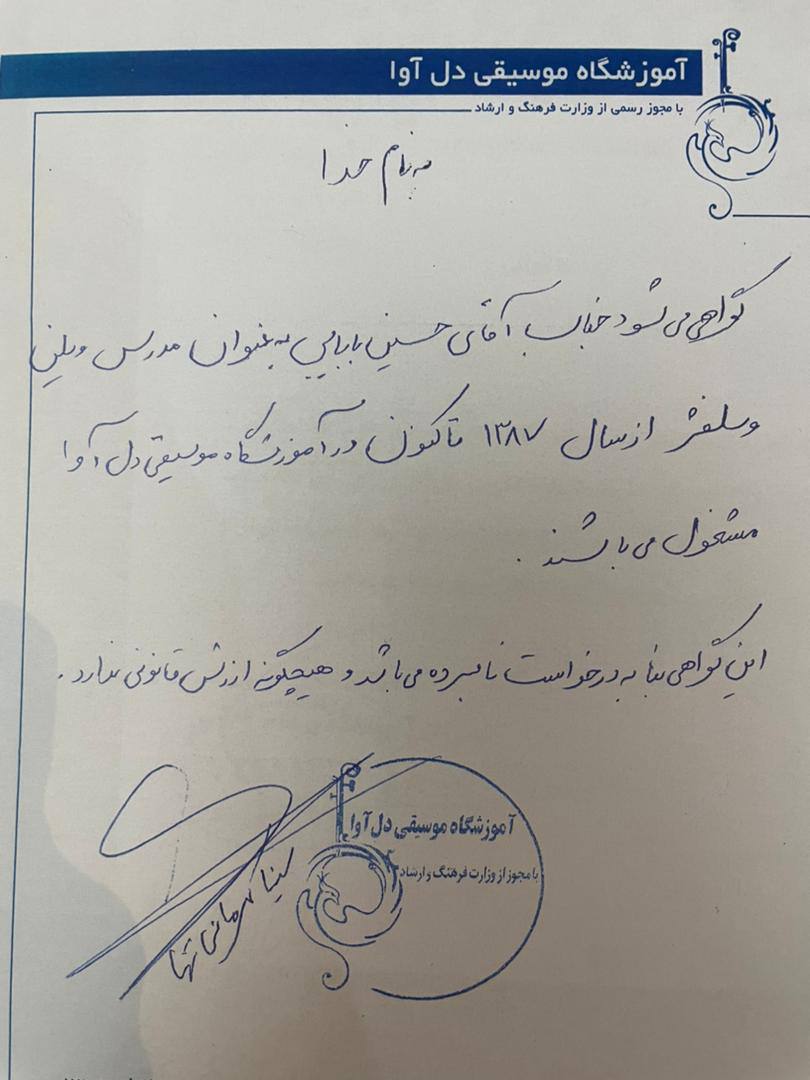 آموزشگاه موسیقی دل آوا
با مجوز رسمی از وزارت فرهنگ و ارشاد
به نام خدا
گواهی می شود جناب آقای حسین بابایی به عنوان مدرس ویلن
و سلفژ از سال ۱۳۸۷ تا کنون در آموزشگاه موسیقی دل آوا
مشغول می باشند .
این گواهی بنا به درخواست نامبرده می باشد و هیچگونه ارزش قانونی ندارد .
آموزشگاه موسیقی دل آوا
با مجوز از وزارت فرهنگ و ارشاد
سینا